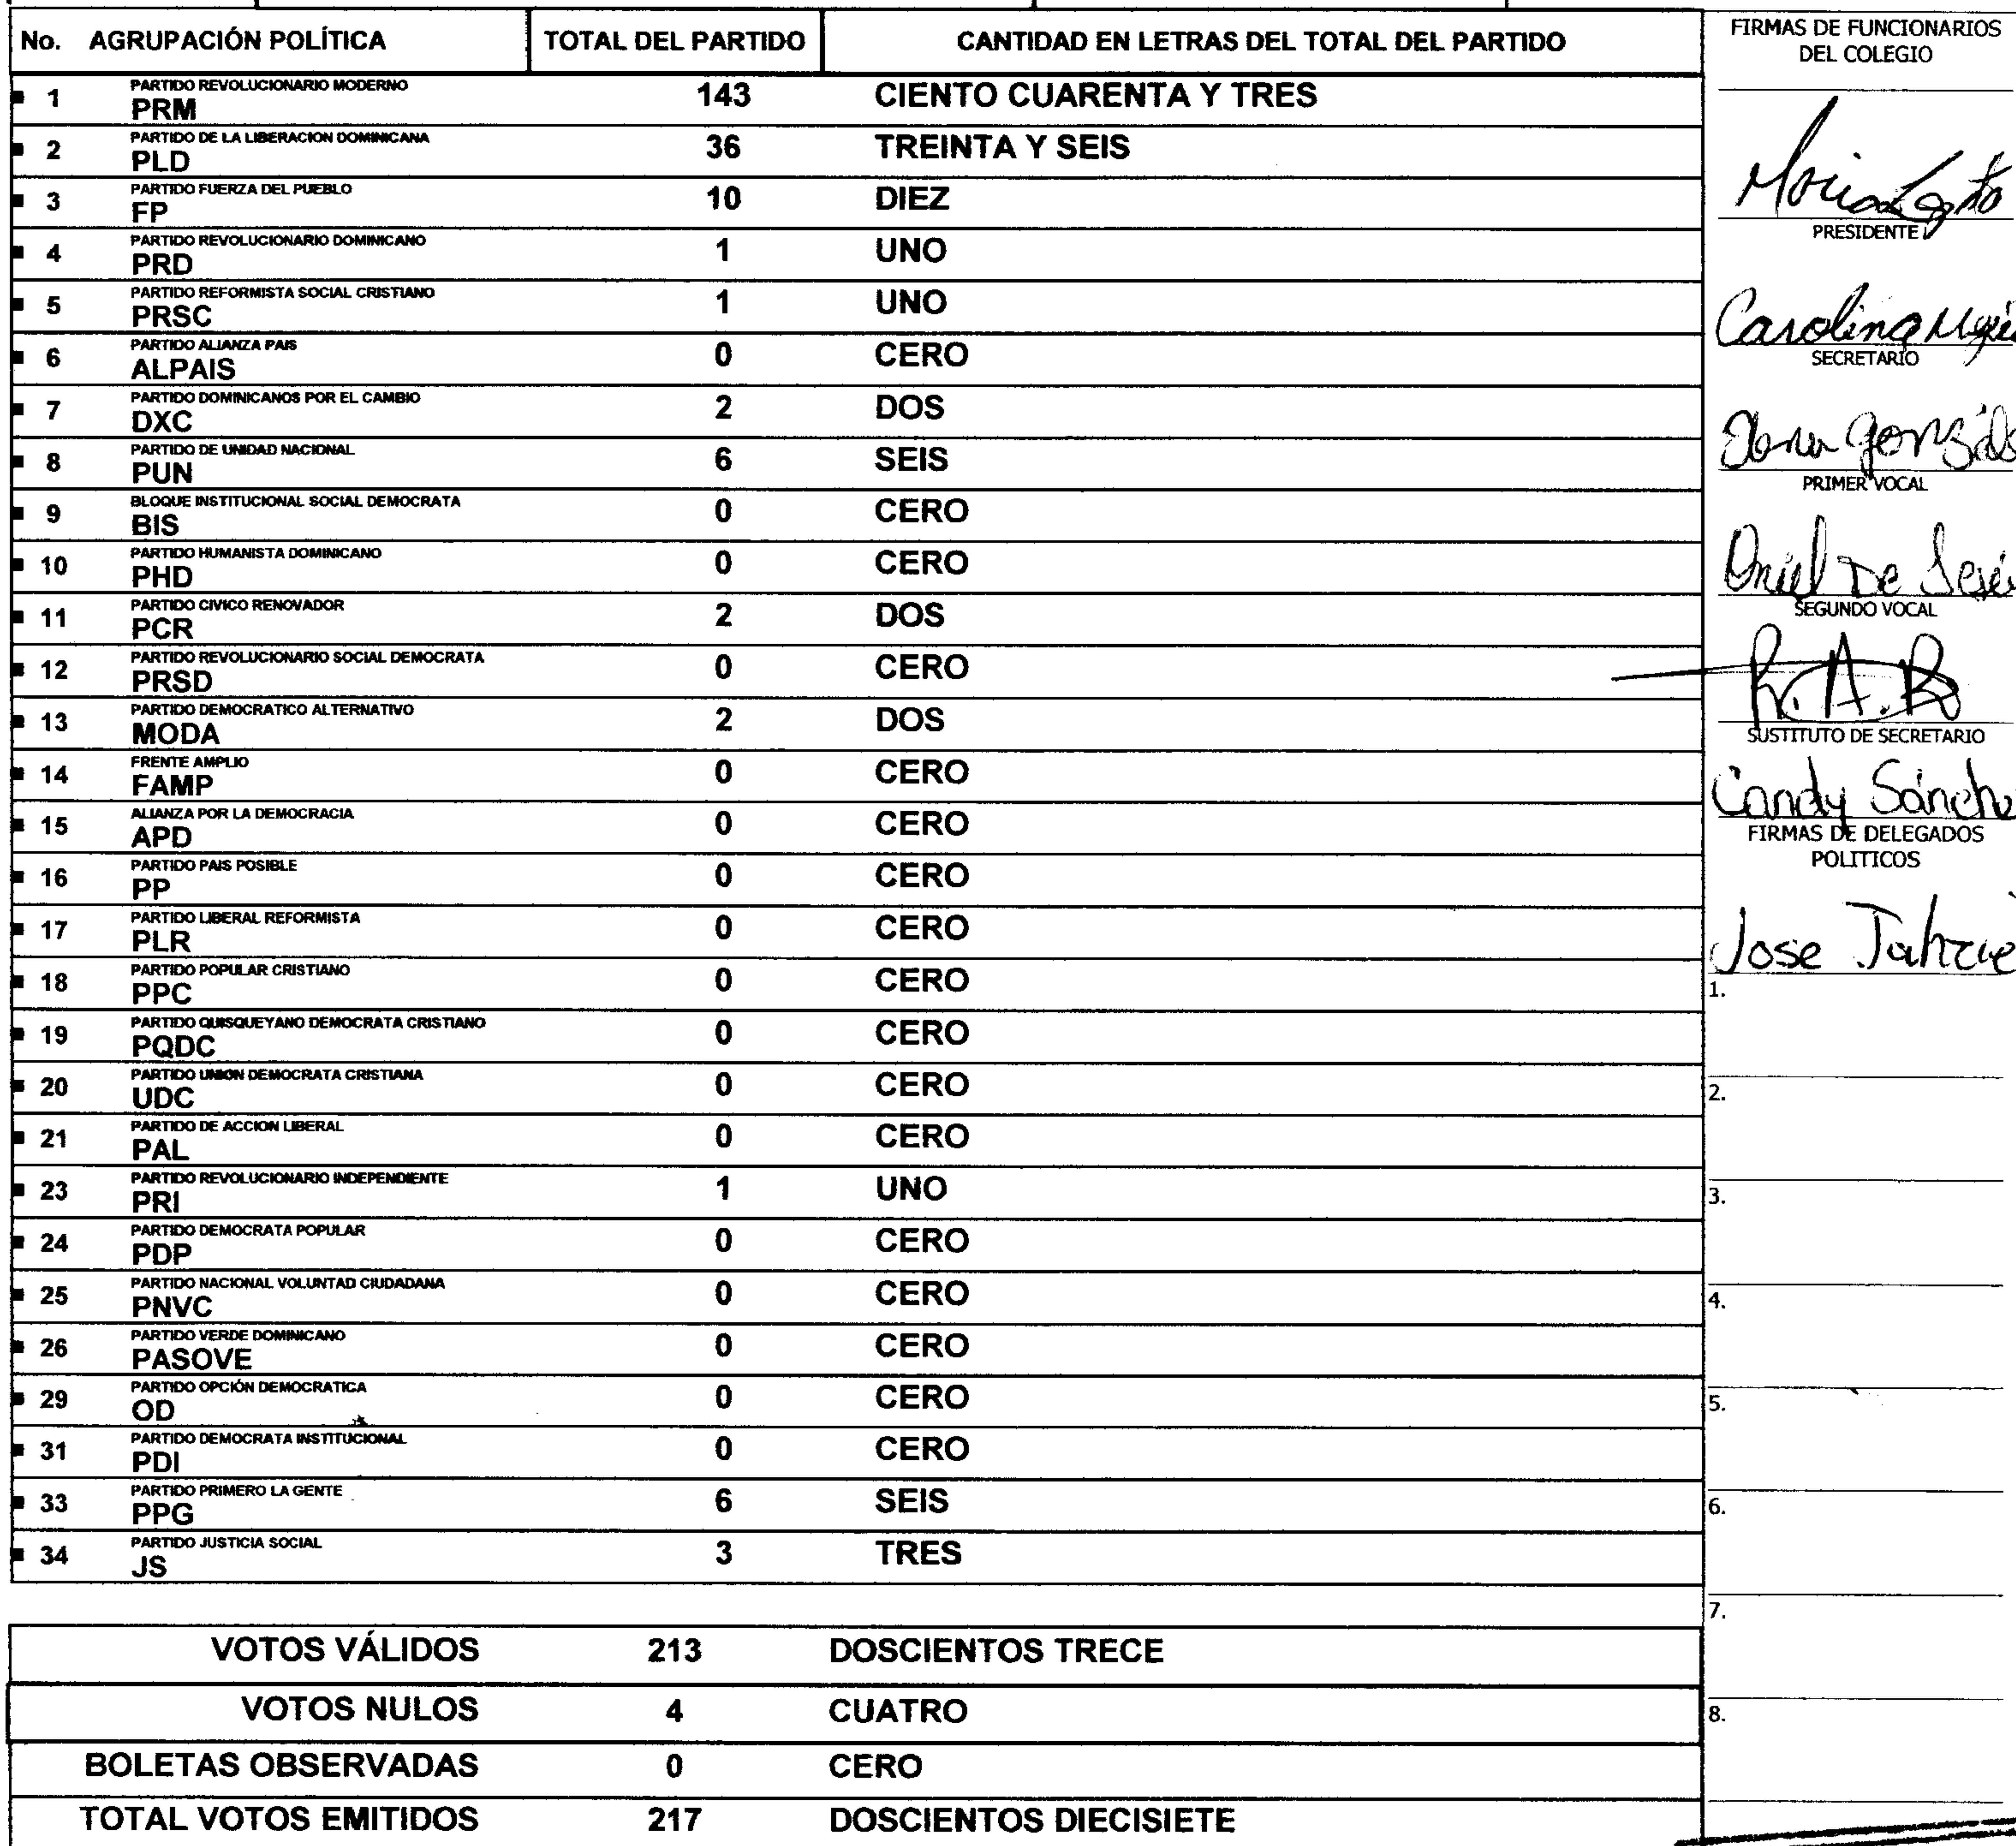 No. AGRUPACIÓN POLÍTICA TOTAL DEL PARTIDO CANTIDAD EN LETRAS DEL TOTAL DEL PARTIDO
1 PARTIDO REVOLUCIONARIO MODERNO
PRM 143 CIENTO CUARENTA Y TRES
2 PARTIDO DE LA LIBERACION DOMINICANA
PLD 36 TREINTA Y SEIS
3 PARTIDO FUERZA DEL PUEBLO
FP 10 DIEZ
4 PARTIDO REVOLUCIONARIO DOMINICANO
PRD 1 UNO
5 PARTIDO REFORMISTA SOCIAL CRISTIANO
PRSC 1 UNO
6 PARTIDO ALIANZA PAIS
ALPAIS 0 CERO
7 PARTIDO DOMINICANOS POR EL CAMBIO
DXC 2 DOS
8 PARTIDO DE UNIDAD NACIONAL
PUN 6 SEIS
9 BLOQUE INSTITUCIONAL SOCIAL DEMOCRATA
BIS 0 CERO
10 PARTIDO HUMANISTA DOMINICANO
PHD 0 CERO
11 PARTIDO CIVICO RENOVADOR
PCR 2 DOS
12 PARTIDO REVOLUCIONARIO SOCIAL DEMOCRATA
PRSD 0 CERO
13 PARTIDO DEMOCRATICO ALTERNATIVO
MODA 2 DOS
14 FRENTE AMPLIO
FAMP 0 CERO
15 ALIANZA POR LA DEMOCRACIA
APD 0 CERO
16 PARTIDO PAIS POSIBLE
PP 0 CERO
17 PARTIDO LIBERAL REFORMISTA
PLR 0 CERO
18 PARTIDO POPULAR CRISTIANO
PPC 0 CERO
19 PARTIDO QUISQUEYANO DEMOCRATA CRISTIANO
PQDC 0 CERO
20 PARTIDO UNION DEMOCRATA CRISTIANA
UDC 0 CERO
21 PARTIDO DE ACCION LIBERAL
PAL 0 CERO
23 PARTIDO REVOLUCIONARIO INDEPENDIENTE
PRI 1 UNO
24 PARTIDO DEMOCRATA POPULAR
PDP 0 CERO
25 PARTIDO NACIONAL VOLUNTAD CIUDADANA
PNVC 0 CERO
26 PARTIDO VERDE DOMINICANO
PASOVE 0 CERO
29 PARTIDO OPCIÓN DEMOCRATICA
OD 0 CERO
31 PARTIDO DEMOCRATA INSTITUCIONAL
PDI 0 CERO
33 PARTIDO PRIMERO LA GENTE
PPG 6 SEIS
34 PARTIDO JUSTICIA SOCIAL
JS 3 TRES
VOTOS VÁLIDOS 213 DOSCIENTOS TRECE
VOTOS NULOS 4 CUATRO
BOLETAS OBSERVADAS 0 CERO
TOTAL VOTOS EMITIDOS 217 DOSCIENTOS DIECISIETE
FIRMAS DE FUNCIONARIOS
DEL COLEGIO
PRESIDENTE
Carolina
SECRETARIO
PRIMER VOCAL
De
SEGUNDO VOCAL
R. A. R
SUSTITUTO DE SECRETARIO
Candy Sánche
FIRMAS DE DELEGADOS
POLITICOS
Jose
1.
2.
3.
4.
5.
6.
7.
8.